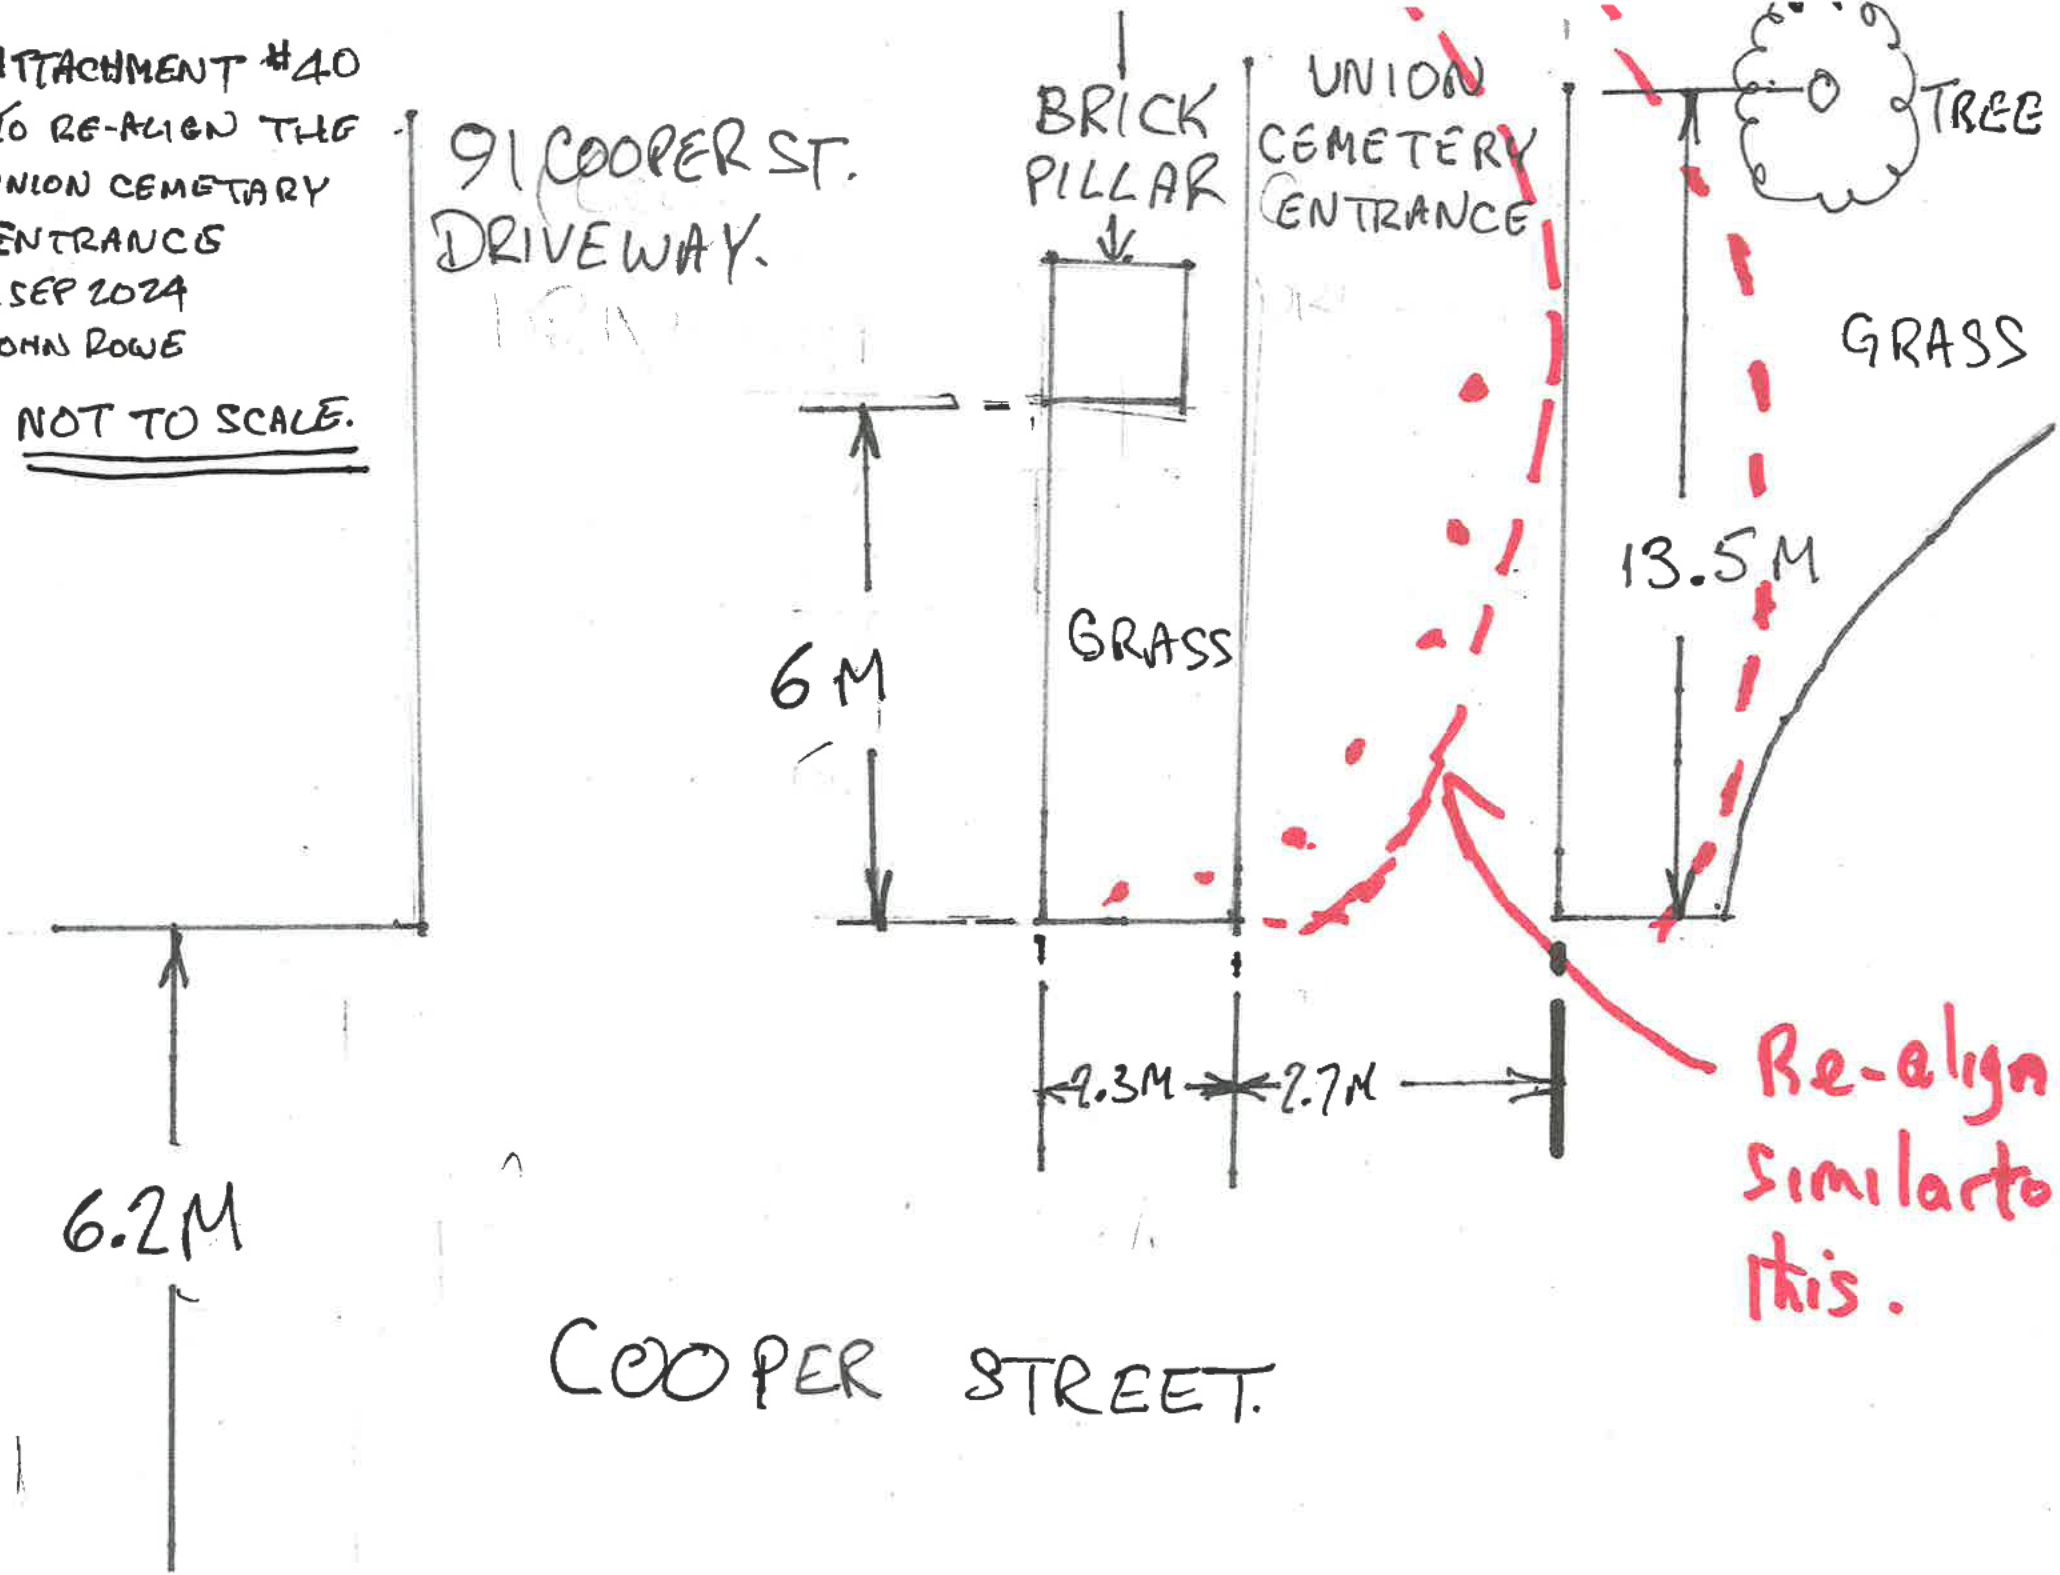 ATTACHMENT #40
TO RE-ALIGN THE
UNION CEMETARY
ENTRANCE
SEP 2024
JOHN ROWE
NOT TO SCALE.
91 COOPER ST.
DRIVEWAY.
BRICK
PILLAR
UNION
CEMETERY
ENTRANCE
TREE
GRASS
13.5M
6M
GRASS
2.3M
2.7M
6.2M
Re-align
Similar to
this.
COOPER STREET.